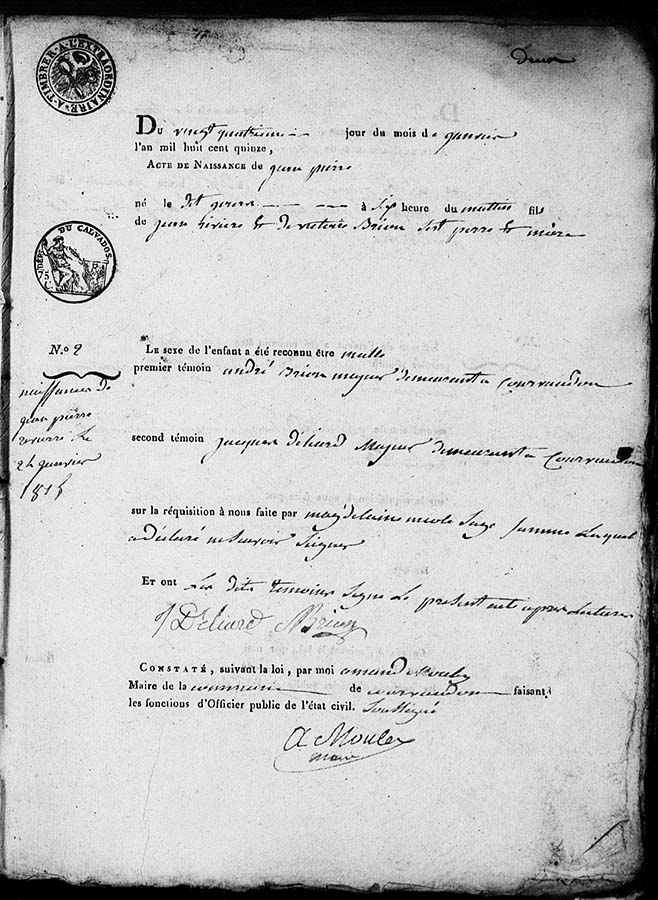 A TIMBRER A L'EXTRAORDINAIRE
Deux
Du vingt quatrieme jour du mois de janvier
l'an mil huit cent quinze,
Acte de Naissance de jean pierre
né le dit jour à six heure du mattin fils
de jean Riviere & de victoire Brion sest perre & mère
DÉPT DU CALVADOS
75
C
N.º 2
Le sexe de l'enfant a été reconnu être malle
premier témoin andré Brion mayeur demeurant a Courvaudon
naissance de
jean pierre
le
24 janvier
1815
second témoin jacques déliard Mayeur demeurant a Courvaudon
sur la réquisition à nous faite par magdelaine nicole sage famme laquel
a déclaré ne savoir signer
Et ont les dits témoins signe le present acte apres lecture
J Déliard ABrion
Constaté, suivant la loi, par moi amand Moulex
Maire de la commune de courvaudon faisant
les fonctions d'Officier public de l'état civil. soussigné
A Moulex
maire